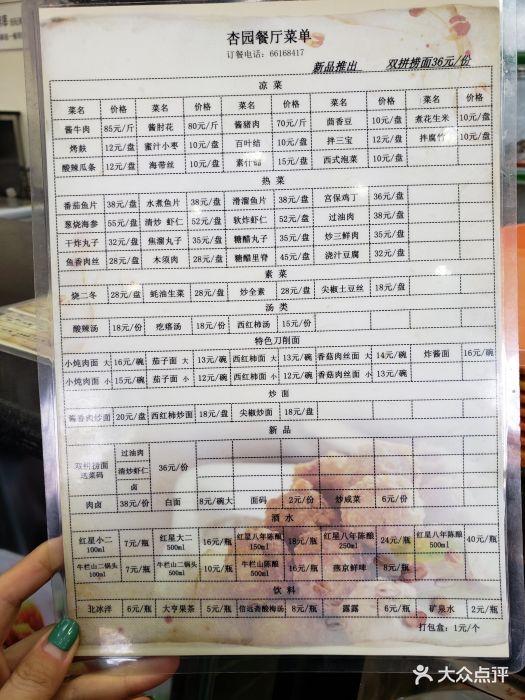 杏园餐厅菜单
订餐电话：66168417
新品推出 双拼捞面36元/份
凉菜
菜名 价格 菜名 价格 菜名 价格 菜名 价格 菜名 价格
酱牛肉 85元/斤 酱肘花 80元/斤 酱猪肉 70元/斤 茴香豆 10元/盘 煮花生米 10元/盘
烤麸 12元/盘 蜜汁小枣 10元/盘 百叶结 10元/盘 拌三宝 12元/盘 拌腐竹 10元/盘
酸辣瓜条 12元/盘 海带丝 10元/盘 素什锦 15元/盘 西式泡菜 10元/盘
热菜
番茄鱼片 38元/盘 水煮鱼片 38元/盘 滑溜鱼片 38元/盘 宫保鸡丁 36元/盘
葱烧海参 55元/盘 清炒 虾仁 52元/盘 软炸虾仁 52元/盘 过油肉 38元/盘
干炸丸子 32元/盘 焦溜丸子 35元/盘 糖醋丸子 35元/盘 炒三鲜肉 35元/盘
鱼香肉丝 28元/盘 木须肉 28元/盘 糖醋里脊 45元/盘 浇汁豆腐 32元/盘
素菜
烧二冬 28元/盘 蚝油生菜 28元/盘 炒全素 28元/盘 尖椒土豆丝 18元/盘
汤类
酸辣汤 18元/份 疙瘩汤 18元/份 西红柿汤 15元/份
特色刀削面
小炖肉面 大 16元/碗 茄子面 大 13元/碗 西红柿面 大 13元/碗 香菇肉丝面 大 14元/碗 炸酱面 16元/碗
小炖肉面 小 15元/碗 茄子面 小 12元/碗 西红柿面 小 12元/碗 香菇肉丝面 小 13元/碗
炒面
酱香肉炒面 20元/盘 西红柿炒面 18元/盘 尖椒炒面 18元/盘
新品
双拼捞面送菜码 过油肉 36元/份
清炒虾仁
卤
肉卤 38元/份 白面 8元/碗大 面码 2元/份 炒咸菜 6元/份
酒水
红星小二 100ml 7元/瓶 红星大二 500ml 16元/瓶 红星八年陈酿 150ml 18元/瓶 红星八年陈酿 250ml 24元/瓶 红星八年陈酿 500ml 40元/瓶
牛栏山二锅头 100ml 7元/瓶 牛栏山二锅头 500ml 10元/瓶 牛栏山陈酿 500ml 16元/瓶 燕京鲜啤 8元/瓶
饮料
北冰洋 6元/瓶 大亨果茶 5元/瓶 信远斋酸梅汤 8元/瓶 露露 6元/瓶 矿泉水 2元/瓶
打包盒：1元/个
大众点评